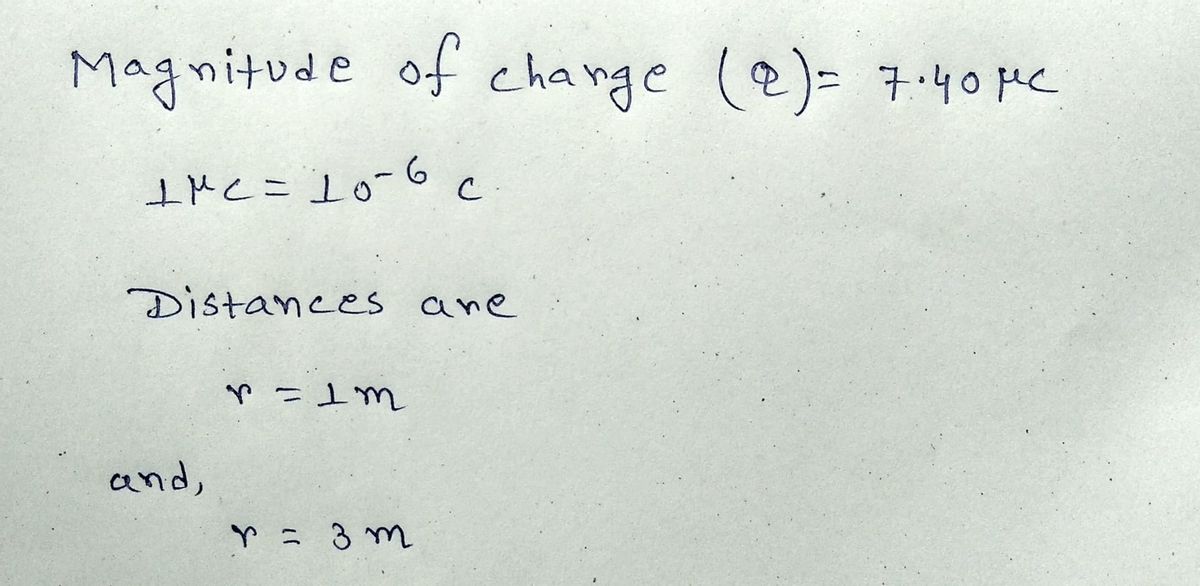 Magnitude of change (Q) = 7.40 μC
1 μC = 10⁻⁶ C
Distances are
r = 1 m
and,
r = 3 m